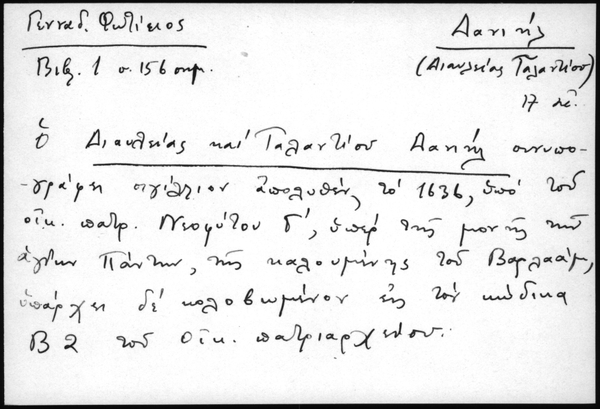 Γενναδ. Φωτίειος
Βιβλ. 1 σ. 156 σημ.
Δανιήλ
(Διαυλείας Ταλαντίου)
17 αἰ.
ὁ Διαυλείας καί Ταλαντίου Δανιήλ συνυπο-
-γράφει σιγίλλιον ἀπολυθέν, τό 1636, ὑπό τοῦ
οἰκ. πατρ. Νεοφύτου Γ', ὑπέρ τῆς μονῆς τῶν
ἁγίων Πάντων, τῆς καλουμένης τοῦ Βαρλαάμ,
ὑπάρχει δέ κολοβωμένον εἰς τόν κώδικα
Β 2 τοῦ Οἰκ. πατριαρχείου.